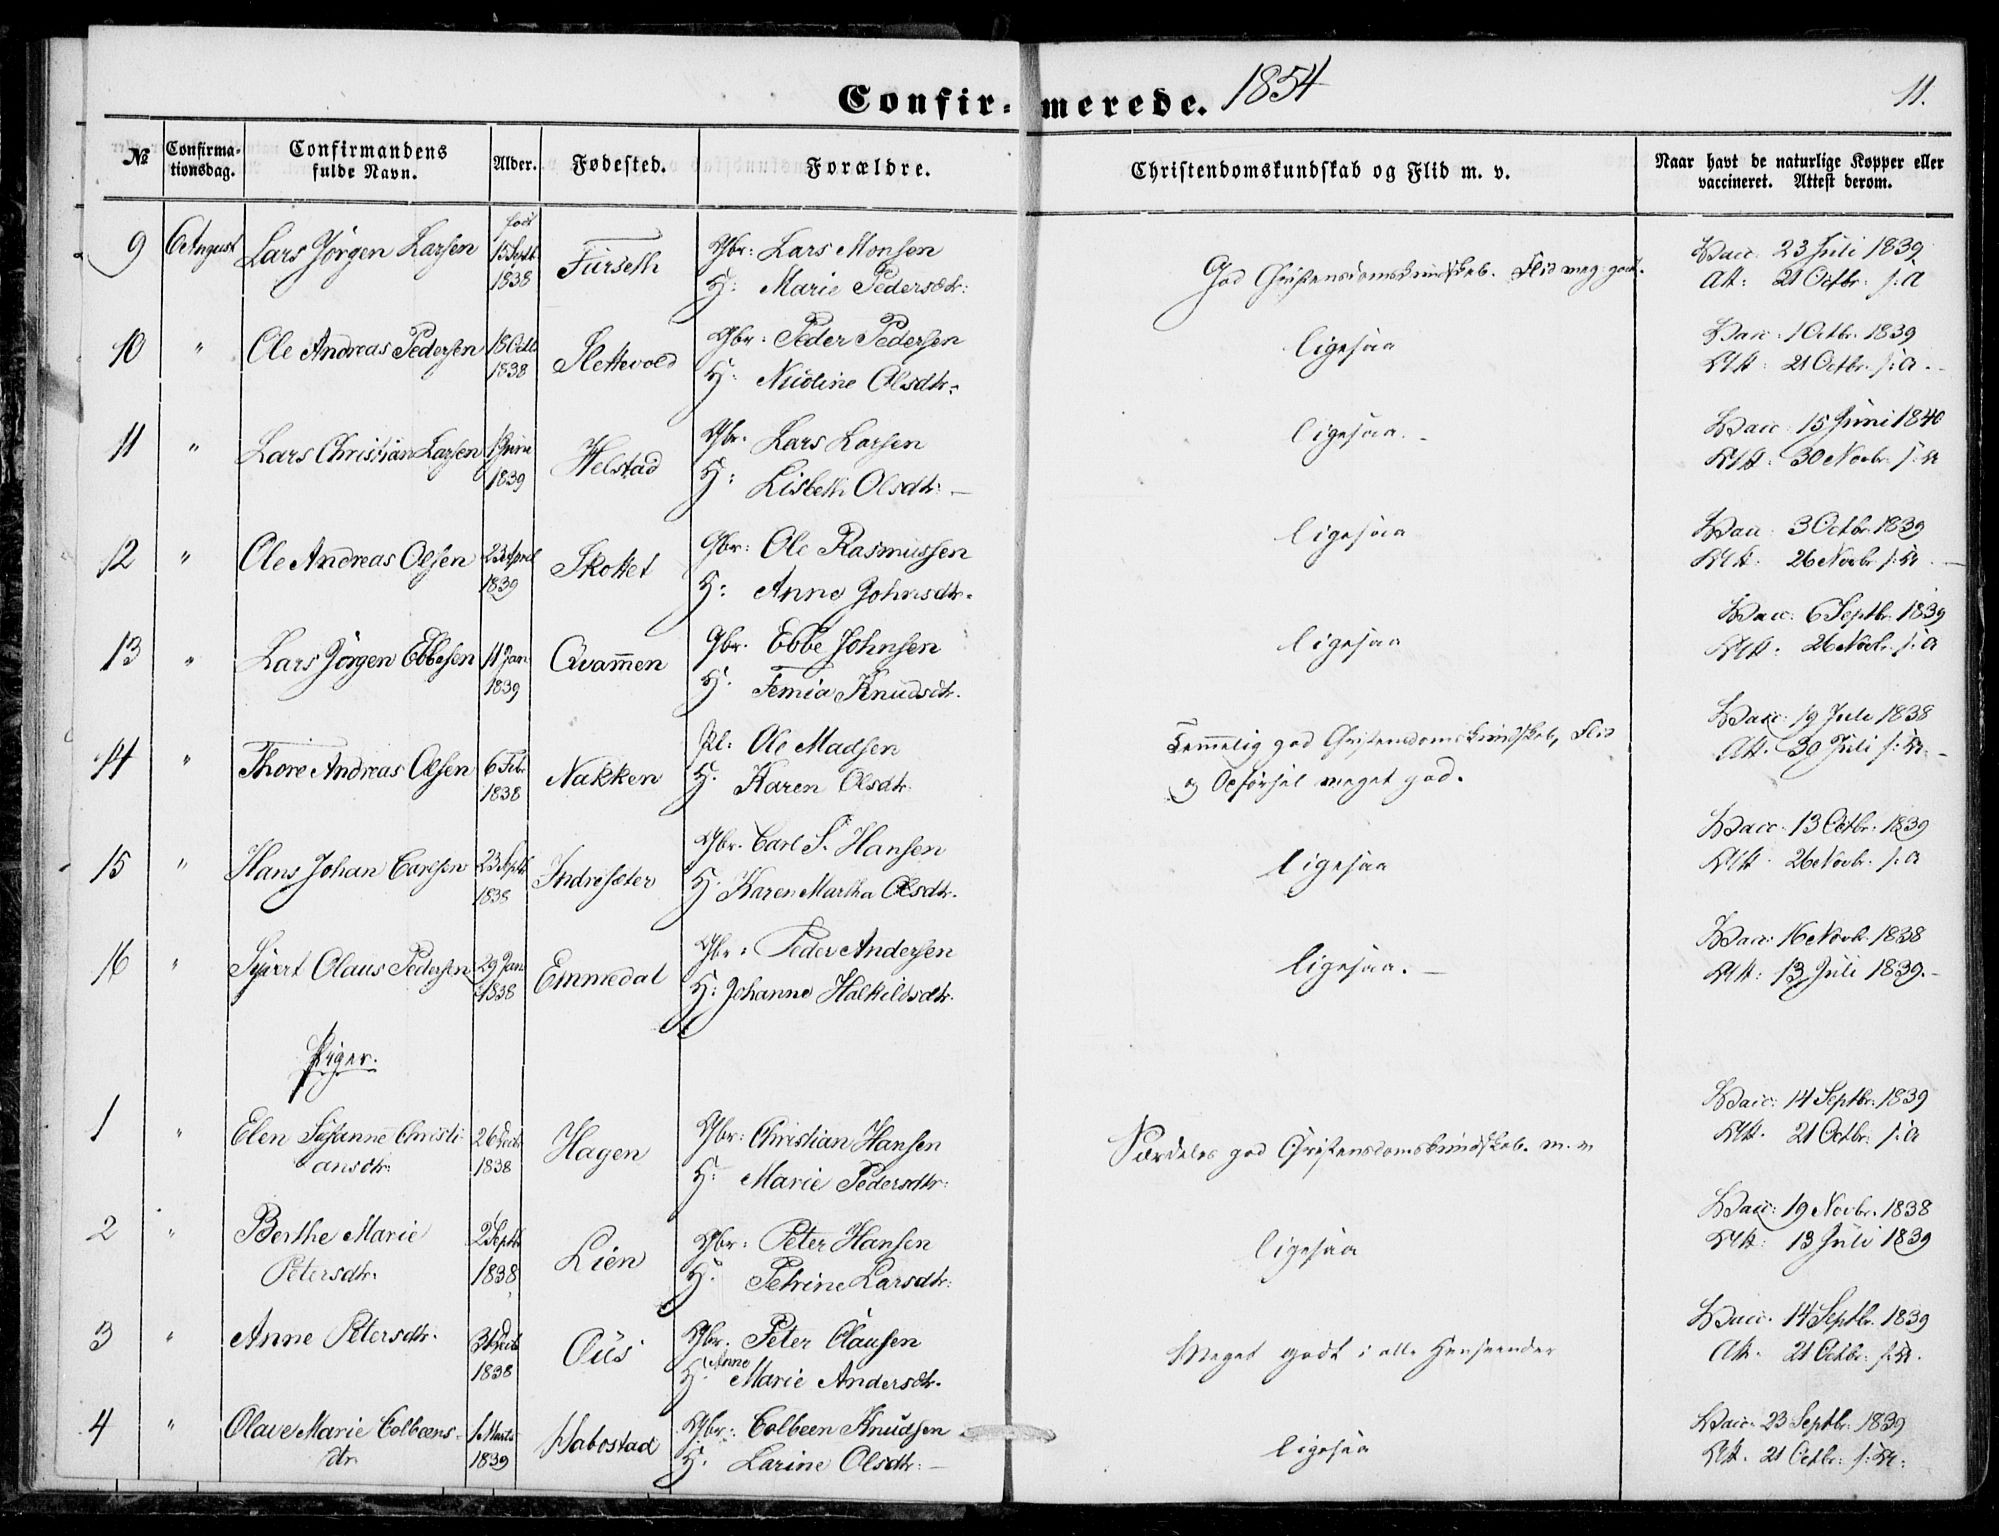 Confirmerede. 1854
11.
№ Confirmationsdag. Confirmandens fulde Navn. Alder. Fødested. Forældre. Christendomskundskab og Flid m. v. Naar havt de naturlige Kopper eller vaccineret. Attest derom.
9 6 August Lars Jørgen Larsen født 15 Septb 1838 Furseth Gbr: Lars Monsen God Christendomskundskab. Flid meg: god. Vacc: 23 Juli 1839
H: Marie Pedersdtr: Att: 21 Octbr. s: A
10 " Ole Andreas Pedersen 18 Octb 1838 Slettevold Gbr: Peder Pedersen ligesaa Vacc: 1 Octbr. 1839
H: Nudine Olsdtr. Att: 21 Octbr. s: A.
11 " Lars Christian Larsen 1 Juni 1839 Helstad Gbr. Lars Larsen ligesaa. Vacc: 15 Juni 1840
H: Lisbeth Olsdtr: Att: 30 Novbr. s: A
12 " Ole Andreas Olsen 23 April 1839 Skottet Gbr: Ole Rasmussen ligesaa Vacc: 3 Octbr. 1839
H: Anne Johnsdtr. Att: 26 Novbr. s: A.
13 " Lars Jørgen Ebbesen 11 Jan 1839 Qvammen Gbr. Ebbe Johnsen ligesaa Vacc: 6 Septbr. 1839
H. Femia Knudsdtr. Att: 26 Novbr. s: A
14 " Thore Andreas Olsen 6 Febr. 1838 Nakken Pl: Ole Madsen Temmelig god Christendomskundskab, Flid Vacc: 19 Juli 1838
H. Karen Olsdtr. og Opførsel meget god. Att. 30 Juli s: A.
15 " Hans Johan Carlsen 23 Septb 1838 Indresæter Gbr. Carl S. Hansen ligesaa Vacc: 13 Octbr. 1839
H. Karen Martha Olsdtr. Att. 26 Novbr. s: A
16 " Sivert Olaus Pedersen 29 Jan 1838 Emmedal Gbr: Peder Andersen ligesaa. Vacc: 16 Novbr. 1838
H: Johanne Halkildsdtr. Att: 13 Juli 1839.
Piger.
1 " Elen Susanne Christi- 26 Decb 1838 Hagen Gbr: Christian Hansen Særdeles god Christendomskundskab. m. m Vacc: 14 Septbr. 1839
ansdtr: H: Marie Pedersdtr: Att. 21 Octbr: s: A
2 " Berthe Marie 2 Septbr 1838 Lien Gbr: Peter Hansen ligesaa Vacc: 19 Novbr. 1838
Petersdtr. H. Petrine Larsdtr: Att: 13 Juli 1839
3 " Anne Petersdtr. 31 Decb 1838 Ous Gbr. Peter Clausen Meget godt i alle Henseender Vacc. 14 Septbr. 1839
H. Anne Marie Andersdtr. Att. 21 Octbr: s: A.
4 " Olave Marie Colbeens- 1 Marts 1839 Habostad Gbr: Colbeen Knudsen ligesaa Vacc: 23 Septbr. 1839
dtr. H. Larine Olsdtr: Att. 21 Octbr: s: A.